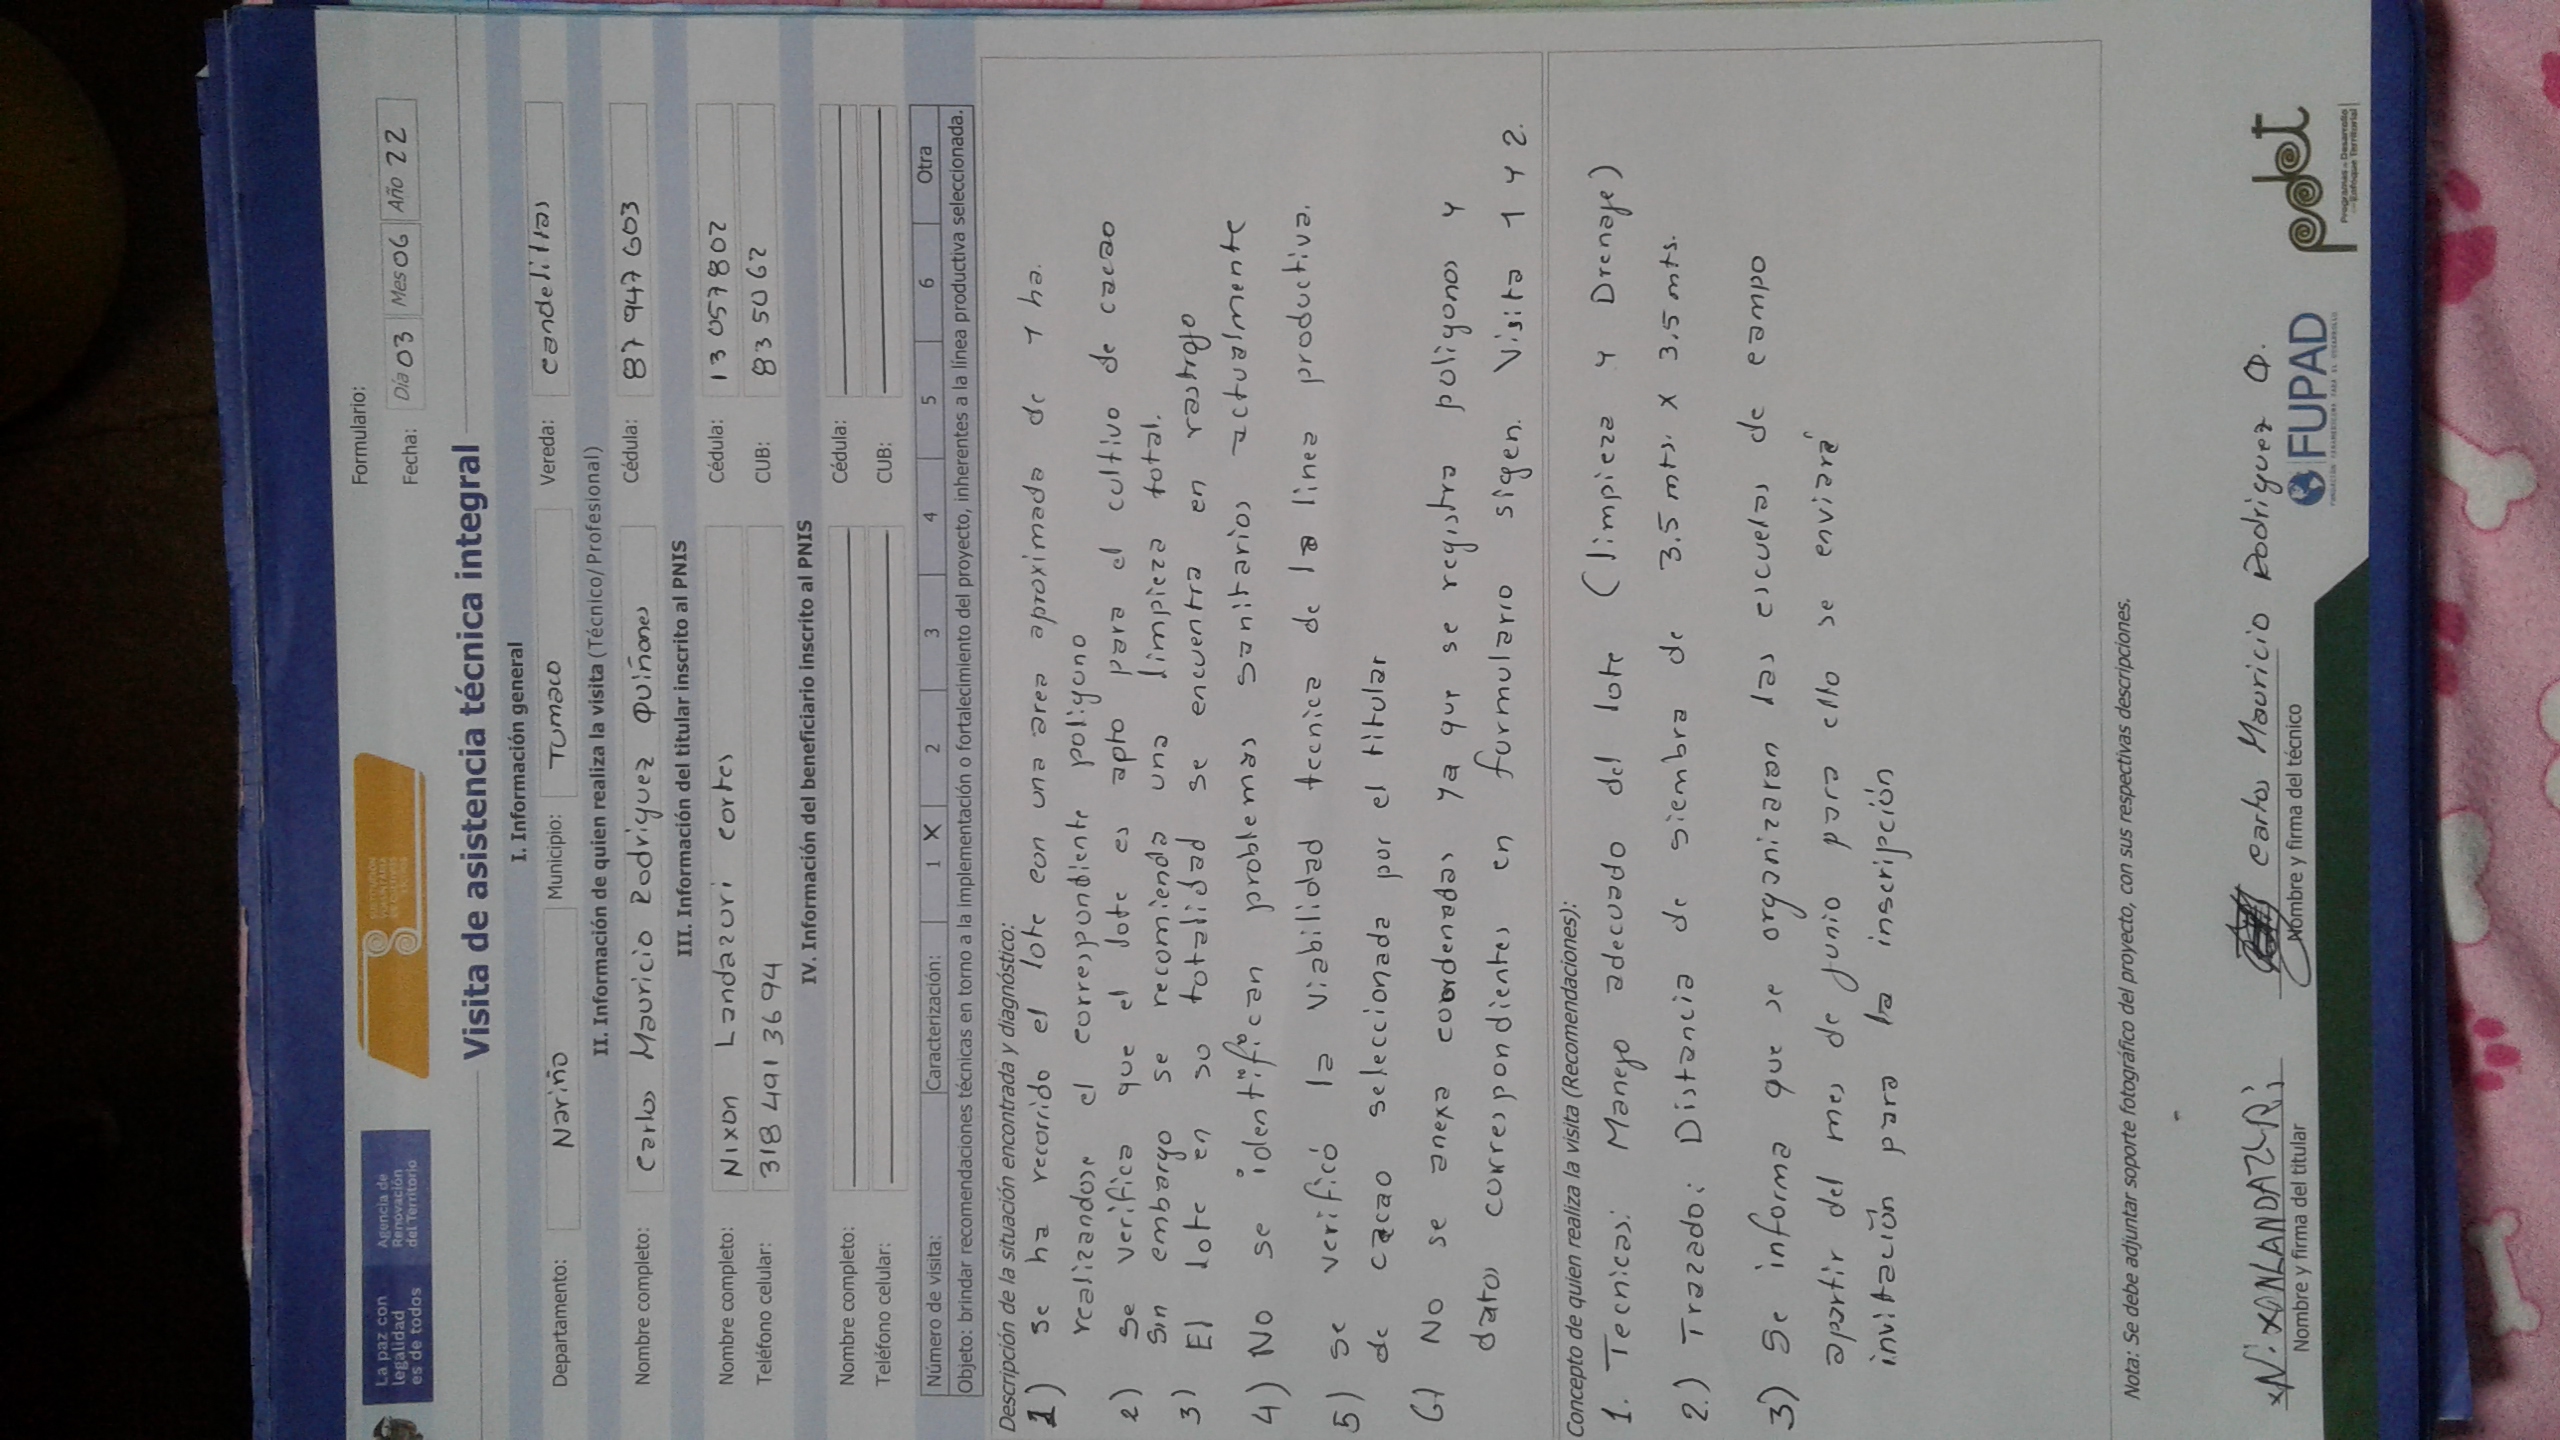 La paz con
legalidad
es de todos
Agencia de
Renovación
del Territorio
SUSTITUCIÓN
VOLUNTARIA
DE CULTIVOS
ILÍCITOS
Formulario:
Fecha: Día 03 Mes 06 Año 22
Visita de asistencia técnica integral
I. Información general
Departamento: Nariño Municipio: Tumaco Vereda: candelillas
II. Información de quien realiza la visita (Técnico/Profesional)
Nombre completo: Carlos Mauricio Rodriguez Quiñones Cédula: 87 947 603
III. Información del titular inscrito al PNIS
Nombre completo: Nixon Landazuri cortes Cédula: 13 057 802
Teléfono celular: 318 491 36 94 CUB: 83 50 62
IV. Información del beneficiario inscrito al PNIS
Nombre completo: Cédula:
Teléfono celular: CUB:
Número de visita: Caracterización: 1 X 2 3 4 5 6 Otra
Objeto: brindar recomendaciones técnicas en torno a la implementación o fortalecimiento del proyecto, inherentes a la línea productiva seleccionada.
Descripción de la situación encontrada y diagnóstico:
1) se ha recorrido el lote con una area aproximada de 1 ha.
realizandose el correspondiente poligono
2) se verifica que el lote es apto para el cultivo de cacao
sin embargo se recomienda una limpieza total.
3) El lote en su totalidad se encuentra en rastrojo
4) No se identifican problemas sanitarios actualmente
5) se verificó la viabilidad tecnica de la linea productiva.
de cacao seleccionada por el titular
6) No se anexa coordenadas ya que se registra poligonos y
datos correspondientes en formulario sigen. Visita 1 y 2.
Concepto de quien realiza la visita (Recomendaciones):
1. Tecnicas: Manejo adecuado del lote (limpieza y Drenaje)
2.) Trazado: Distancia de siembra de 3.5 mts. x 3.5 mts.
3) Se informa que se organizaron las escuelas de campo
apartir del mes de junio para ello se enviará
invitación para la inscripción
Nota: Se debe adjuntar soporte fotográfico del proyecto, con sus respectivas descripciones.
x NixONLANDAZURi
Nombre y firma del titular
Carlos Mauricio Rodriguez Q.
Nombre y firma del técnico
FUPAD
FUNDACIÓN PANAMERICANA PARA EL DESARROLLO
pdet
Programas de Desarrollo
con Enfoque Territorial